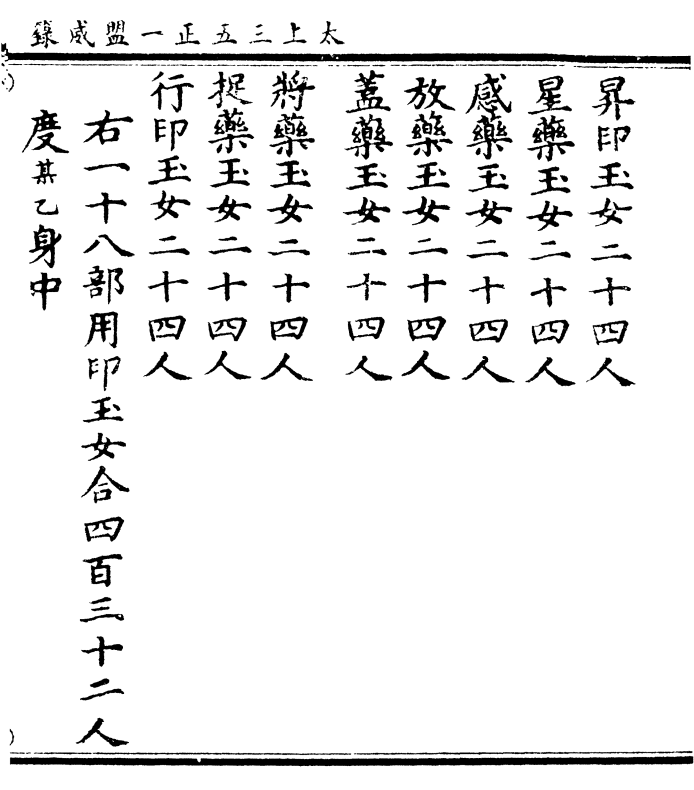 太上三五正一盟威籙
昇印玉女二十四人
星藥玉女二十四人
感藥玉女二十四人
放藥玉女二十四人
蓋藥玉女二十四人
將藥玉女二十四人
捉藥玉女二十四人
行印玉女二十四人
右一十八部用印玉女合四百三十二人
度某乙身中